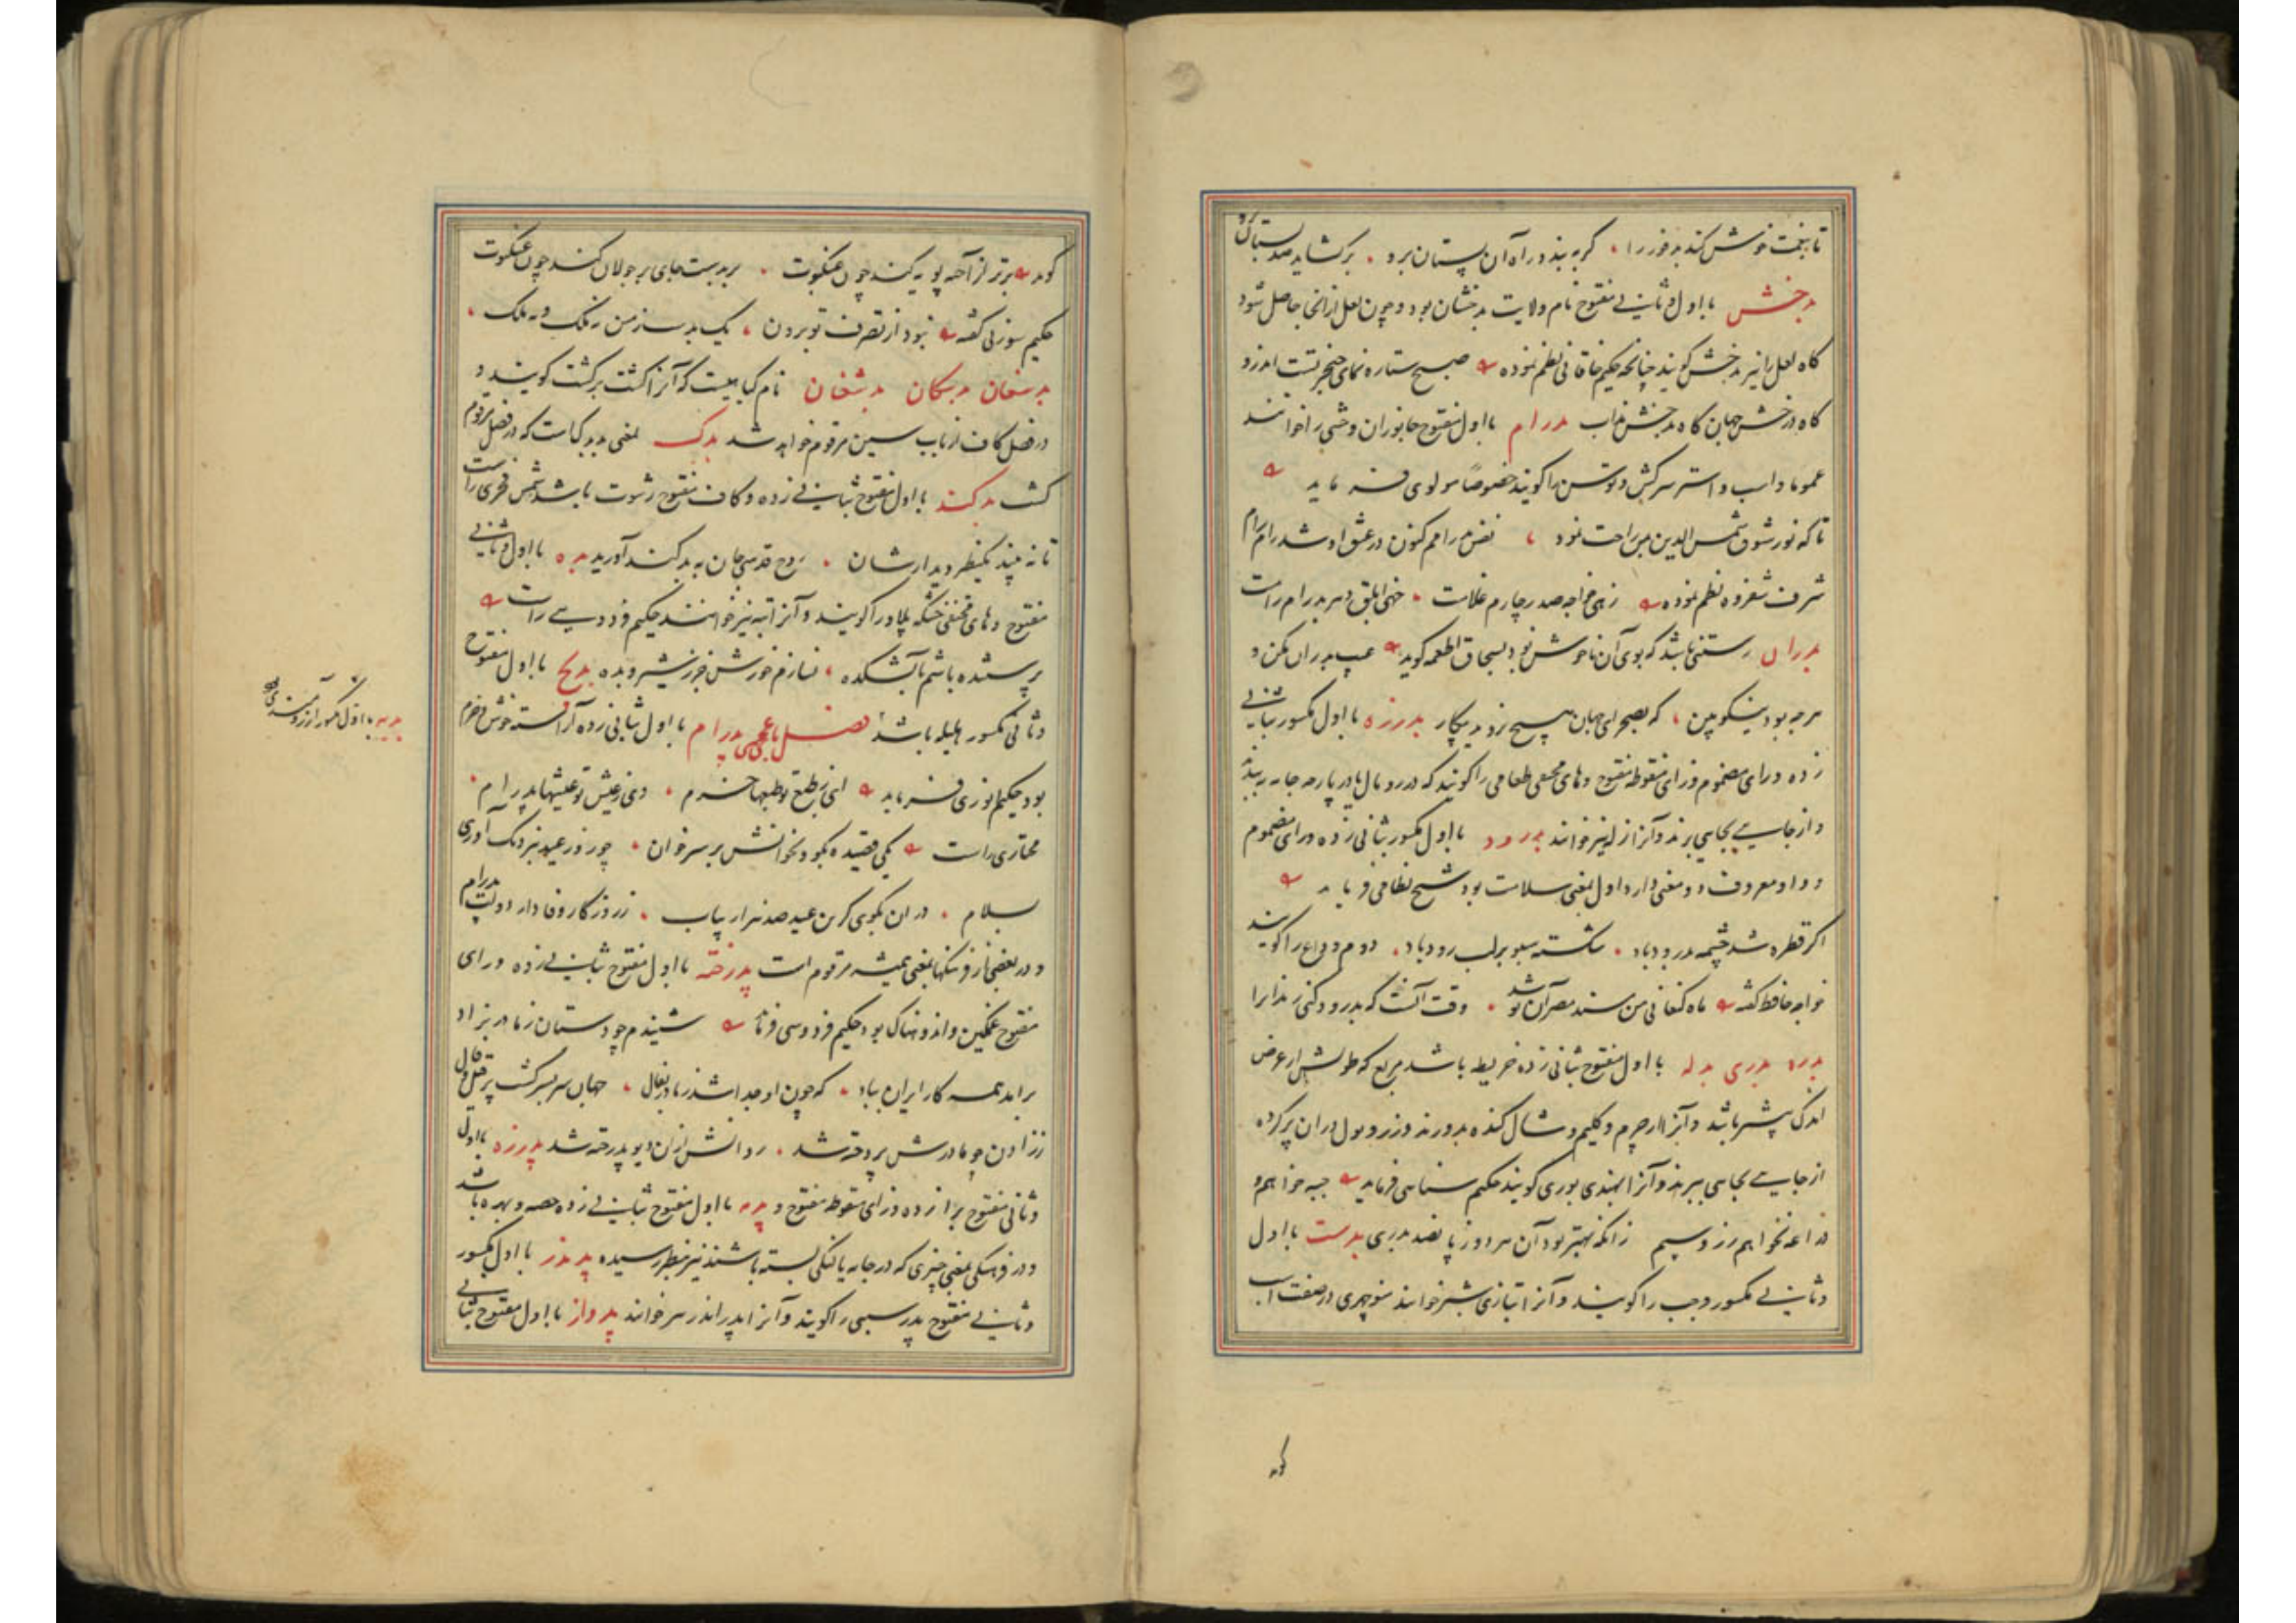 تا بخمت خوش کند بدفوز را کر به بندد راه آن پستان برو برکشاید صد بستان
بدخش با اول و ثانی مفتوح نام ولایت بدخشان بود و چون لعل از انجا حاصل شود
گاه لعل را نیز بدخش کویند چنانکه حکیم خاقانی نظم نموده صبح ستاره نمای خنجر تست اندرو
گاه درخش جهان گاه بدخش مذاب بدرام با اول مفتوح جانوران وحشی را خوانند
عموما و اسب و استر سرکش و توسن را کویند خصوصا مولوی فرماید
تا که نور شوق شمس الدین من راحت نمود نفس بدرامم کنون در عشق او شد رام رام
شرف شفروه نظم نموده زهی خواجه صدر چارم غلامت خهی ابلق دهر بدرام رامت
بدران رستنی باشد که بوی آن ناخوش بود بسحاق اطعمه کوید عیب بدران مکن و
هرچه بود نیکو بین که بصحرای جهان هیچ نروید بیکار بدرزه با اول مکسور بثانی
زده و رای مضموم و زای منقوطه مفتوح و های مختفی طعامی را کویند که در رومال یا در پارچه جامه به بندند
و از جایی بجایی برند و آنرا زله نیز خوانند بدرود با اول مکسور بثانی زده و رای مضموم
و واو معروف دو معنی دارد اول بمعنی سلامت بود شیخ نظامی فرماید
اکر قطره شد چشمه بدرود باد شکسته سبو بر لب رود باد دوم وداع را کویند
خواجه حافظ کفته ماه کنعانی من مسند مصر آن تو شد وقت آنست که بدرود کنی زندانرا
بدره بدری بدله با اول مفتوح بثانی زده خریطه باشد مربع که طولش از عرض
اندکی بیشتر باشد و آنرا از چرم و کلیم و شال کنده بدوزند و زر و پول در ان پر کرده
از جایی بجایی ببرند و آنرا بهندی بوری کویند حکیم سنائی فرماید جبه خواهم و
دراعه نخواهم زر و سیم زانکه بهتر بود آن هر دو ز پانصد بدری بدست با اول
و ثانی مکسور وجب را کویند و آنرا بتازی شبر خوانند منوچهری در صفت اسب
کوید برتر از آخر پویه کند چون عنکبوت بر بدست جای بر جولان کند چون عنکبوت
حکیم سوزنی کفته نبود از تصرف تو برون یک بدست زمین نه فلک و نه ملک
بدسغان بدسکان بدشغان نام کیاهیست که آنرا کشت برکشت کویند و
در فصل کاف از باب سین مرقوم خواهد شد بدک بمعنی بدبدک است که در فصل مرقوم
کشت بدکند با اول مفتوح بثانی زده و کاف مفتوح رشوت باشد شمس فخری راست
تا نه بیند یکنظر دیدارشان روح قدسی جان به بدکند آورید بده با اول و ثانی
مفتوح و های مختفی خشکه پلاو را کویند و آنرا تبه نیز خوانند حکیم فردوسی راست
پرستنده باشم بآتشکده نسازم خورش جز ز شیر و بده بدیخ با اول مفتوح
و ثانی مکسور هلیله باشد فصل بای عجمی پدرام با اول بثانی زده آراسته خوش و خرم
بود حکیم انوری فرماید ای ز طلع تو طبعها خرم وی ز عیش تو عیشها پدرام
مختاری راست یکی قصیده بکو و بخوانش بر سر خوان چو روز عید بنزدیک آوری
سلام در ان بکوی کزین عید صد هزار بیاب ز روزکار وفادار دولت پدرام
و در بعضی از فرهنکها بمعنی همیشه مرقوم است پدرخته با اول مفتوح بثانی زده و رای
مفتوح غمکین و اندوهناک بود حکیم فردوسی فرماید شنیدم چو دستان ز مادر بزاد
برآمد همه کار ایران بباد که چون او جدا شد ز مادر بفال جهان سربسر کشت پر قیل و قال
ززادن چو مادرش پردخته شد روانش از ان دیو پدرخته شد پدرزه با اول
و ثانی مفتوح برا زده و زای منقوطه مفتوح و پدره با اول مفتوح بثانی زده حصه و بهره باشد
و در فرهنکی بمعنی چیزی که در جامه یا لنکی بسته باشند نیز بنظر رسیده پدندر با اول مکسور
و ثانی مفتوح پدر سببی را کویند و آنرا پدراندر هم خوانند پدواز با اول مفتوح بثانی
بدیه با اول مکسور آرزومندی